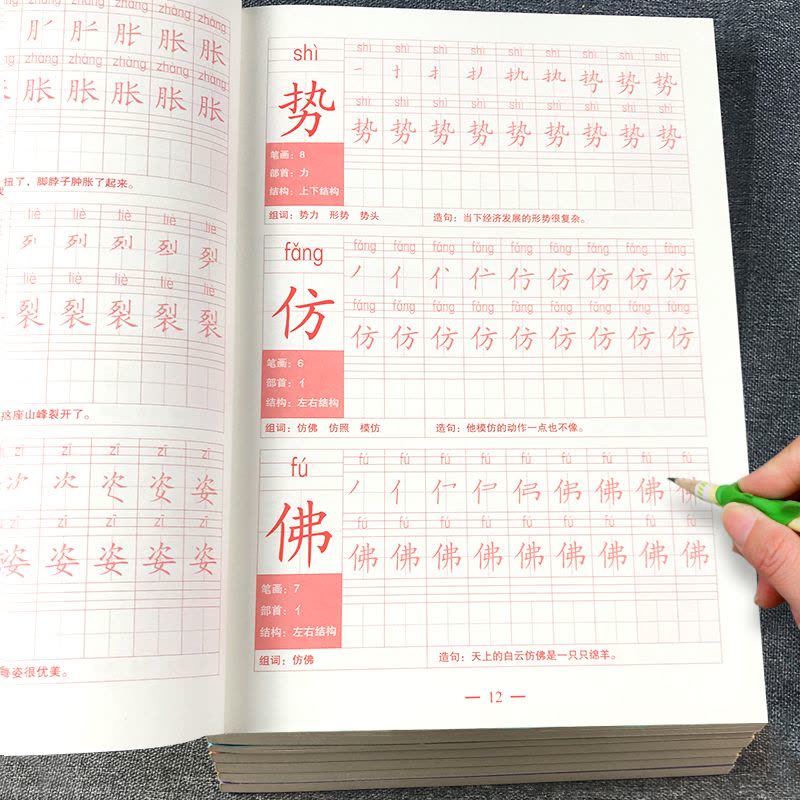 zhàng zhàng zhàng zhàng
胀 胀
zhàng zhàng zhàng zhàng
胀 胀 胀 胀 胀
扭了，脚脖子肿胀了起来。
liè liè liè liè
列 列
liè liè liè liè liè
裂 裂 裂 裂 裂
这座山峰裂开了。
zī zī zī zī
次 次 姿 姿
zī zī zī zī
姿 姿 姿 姿 姿
姿很优美。
shì
势
笔画：8
部首：力
结构：上下结构
shì shì shì shì shì shì shì shì shì
一 十 扌 执 执 势 势 势
shì shì shì shì shì shì shì shì shì
势 势 势 势 势 势 势 势 势
组词：势力 形势 势头
造句：当下经济发展的形势很复杂。
fǎng
仿
笔画：6
部首：亻
结构：左右结构
fǎng fǎng fǎng fǎng fǎng fǎng fǎng fǎng fǎng
丿 亻 仿 仿 仿 仿
fǎng fǎng fǎng fǎng fǎng fǎng fǎng fǎng fǎng
仿 仿 仿 仿 仿 仿 仿 仿 仿
组词：仿佛 仿照 模仿
造句：他模仿的动作一点也不像。
fú
佛
笔画：7
部首：亻
结构：左右结构
fú fú fú fú fú fú fú fú fú
丿 亻 佛 佛 佛 佛
fú fú fú fú fú fú fú fú fú
佛 佛 佛 佛 佛 佛 佛 佛 佛
组词：仿佛
造句：天上的白云仿佛是一只只绵羊。
— 12 —